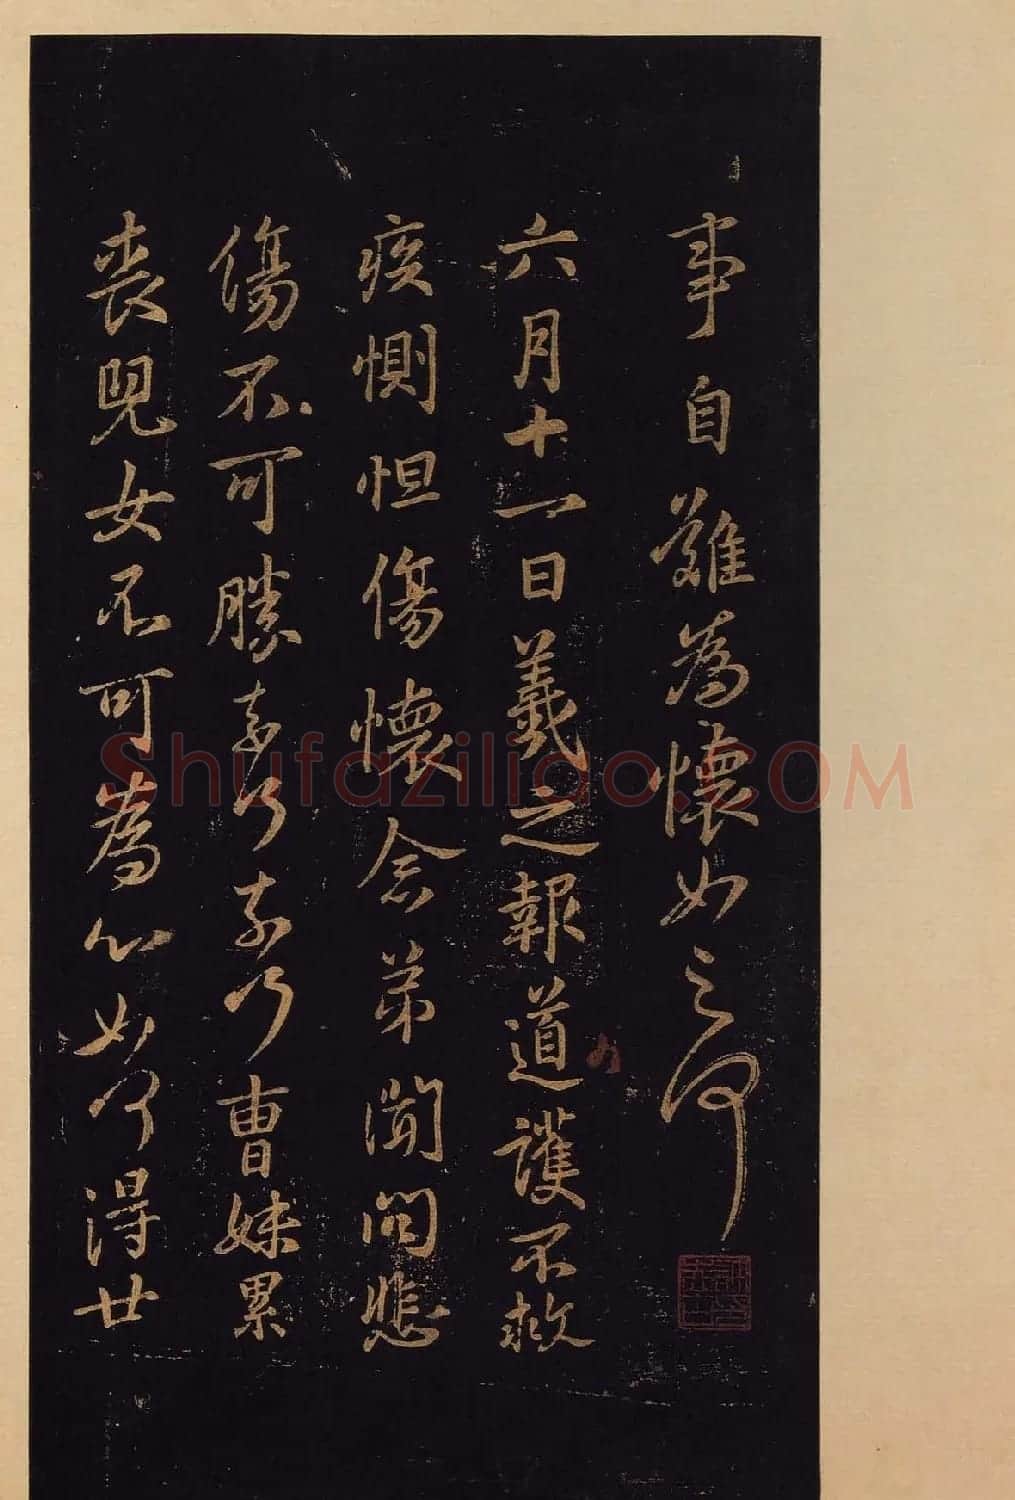 事自難為懷如之何
六月十一日羲之報道護不救
疾惻怛傷懷念弟聞問悲
傷不可勝奈何奈何曹妹累
喪兒女不可為心如何得廿
Shufaziliao.COM